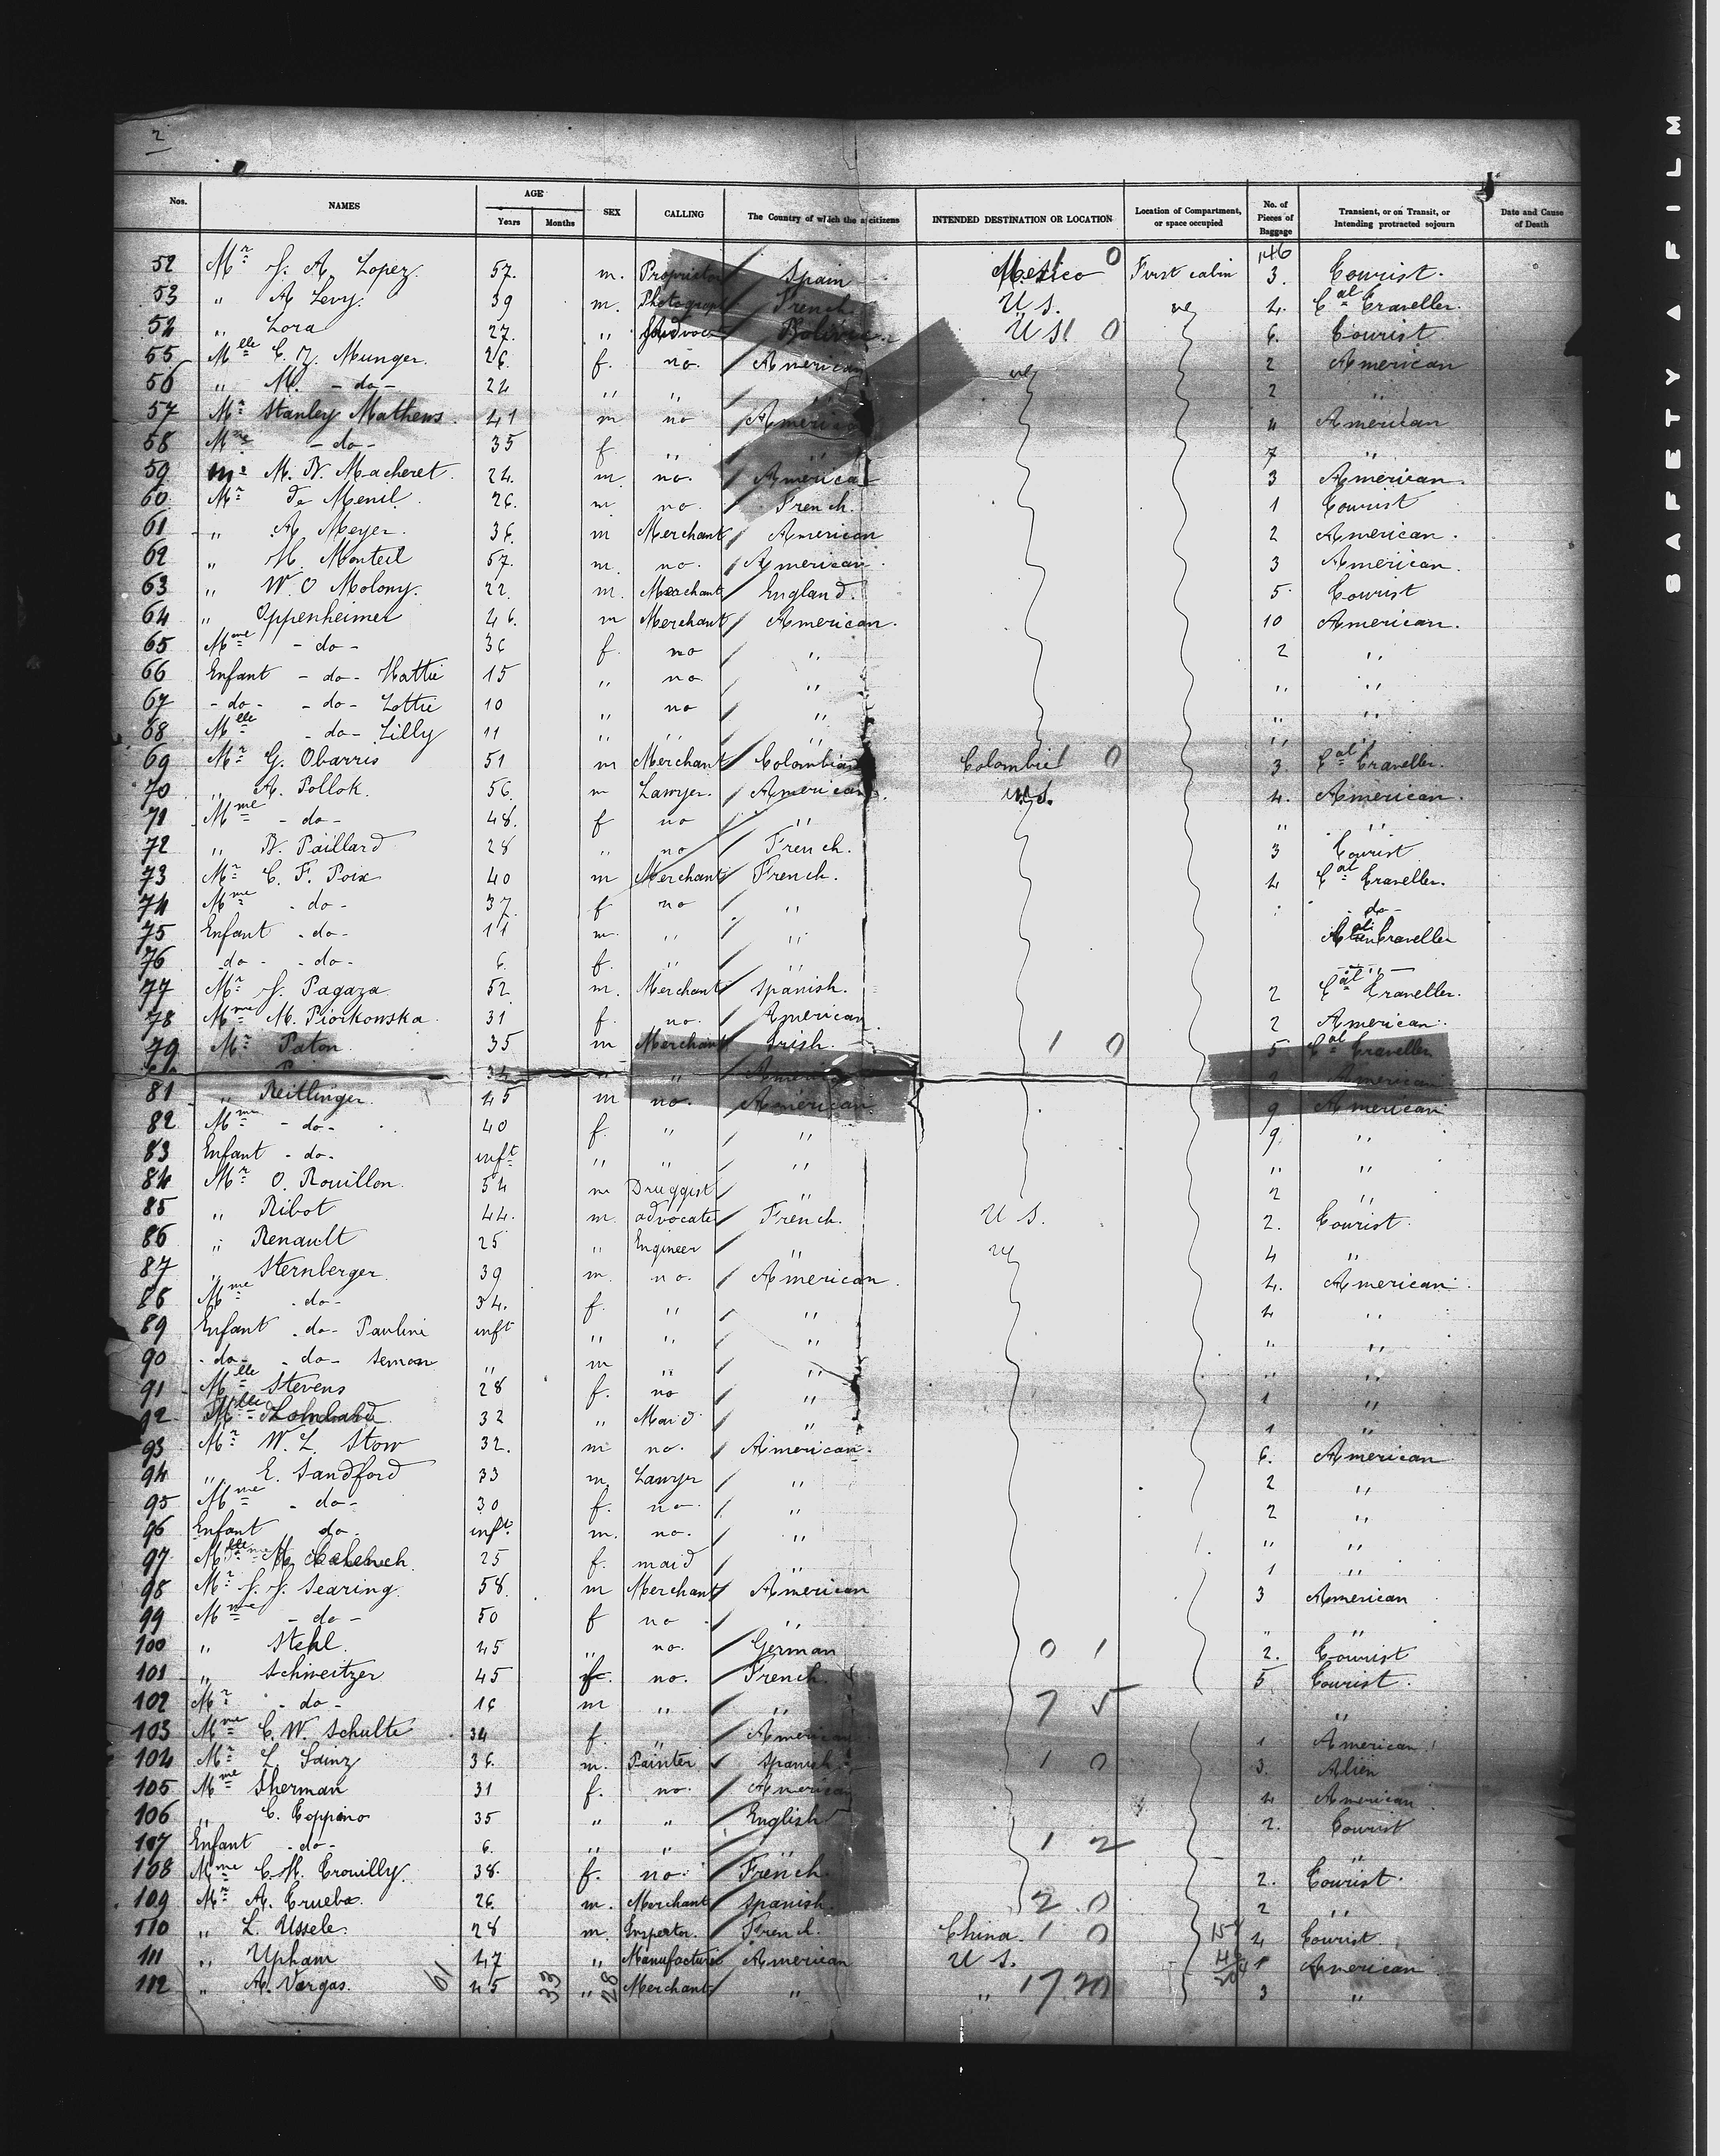 2
Nos. NAMES AGE Years Months SEX CALLING The Country of which the a citizens INTENDED DESTINATION OR LOCATION Location of Compartment, or space occupied No. of Pieces of Baggage Transient, or on Transit, or Intending protracted sojourn Date and Cause of Death
146
52 Mr J. A. Lopez. 57. m. Proprietor Spain Mexico 0 First cabin 3. Tourist.
53 " A Levy. 39 m. Photograph French U S. 4. Cal Traveller.
54 " Lora 27. " Advoc Bolivia U S 1 0 6. Tourist.
55 Mlle C. Y. Munger. 26. f. no. American 2 American
56 " M. - do - 22 " " " 2 "
57 Mr Stanley Mathews. 41 m no American 4 American
58 Mme - do - 35 f " " 7 "
59 Mr M. N. Macheret. 24. m. no. America 3 American.
60 Mr de Menil. 26. m no. French. 1 Tourist
61 " A. Meyer. 36. m Merchant American 2 American.
62 " H. Monteil 57. m. no. American. 3 American.
63 " W. O Molony. 22. m. Merchant England. 5 Tourist
64 " Oppenheimer 46. m Merchant American. 10 American.
65 Mme - do - 36 f. no " 2 "
66 Enfant - do - Hattie 15 " no " " "
67 - do - - do - Lottie 10 " no " " "
68 Mlle - do - Lilly 11 " " " " "
69 Mr G. Obarrio 51 m Merchant Colombian Colombie 1 0 3. Cal Traveller.
70 " A. Pollok. 56. m Lawyer. American. U.S. 4. American.
71 Mme - do - 48. f no " " "
72 " N. Paillard 28 " no French. 3 Tourist
73 Mr C. F. Poix 40 m Merchant French. 4 Cal Traveller.
74 Mme - do - 37. f no " - do -
75 Enfant - do - 11 m. " " Traveller
76 - do - - do - 6. f. " " "
77 Mr J. Pagaza. 52. m. Merchant Spanish. 2 Cal Traveller.
78 Mme M. Piorkowska. 31 f. no. American. 2 American.
79 Mr Paton 35 m Merchant Irish. 1 0 5 Cal Traveller
34 " American American
81 " Reitlinger. 45 m no. American 9 American
82 Mme - do - 40 f. " " 9 "
83 Enfant - do - inft " " " " "
84 Mr O. Rouillon. 54 m Druggist " 2 "
85 " Ribot 44. m. advocate French. U S. 2. Tourist.
86 " Renault 25 " Engineer " 4 "
87 " Sternberger. 39 m. no. American. 4. American.
88 Mme - do - 34. f. " " 4 "
89 Enfant - do - Pauline inft " " " " "
90 - do - - do - Semon " m " " " "
91 Mlle Stevens 28 f. no " 1 "
92 Mlle Lombard. 32 " Maid " 1 "
93 Mr W. L. Stow 32. m no. American. 6. American
94 " E. Sandford 33 m Lawyer " 2 "
95 Mme - do - 30 f. no " 2 "
96 Enfant do - inft. m. no. " " "
97 25 f. maid " 1 "
98 Mr J. J. Searing. 58. m Merchant American 3 American
99 Mme - do - 50 f no " " "
100 " Stehl. 45 " no. German 0 1 2. Tourist
101 " Schweitzer 45 f. no. French. 5 Tourist.
102 Mr - do - 16 m " " 7 5 "
103 Mme C. W. Schulte 34 f. " American 1 American
104 Mr L Sainz 36. m. Painter Spanish. 1 0 3. Alien
105 Mme Sherman 31 f. no. American 4 American
106 " C. Coppino 35 " " English 2. Tourist
107 Enfant - do - 6. " " " 1 2 "
108 Mme C. H. Trouilly. 38. f. no. French. 2. Tourist.
109 Mr A. Trueba. 26. m. Merchant Spanish. 2 0 2 "
110 " L. Ussele. 28 m. Inspector. French. China. 1 0 4 Tourist
111 " Upham 47 " Manufacture American U S. 1 American
112 " A. Vargas. 61 45 33 " 28 Merchant " " 17 20 3 "
SAFETY A FILM